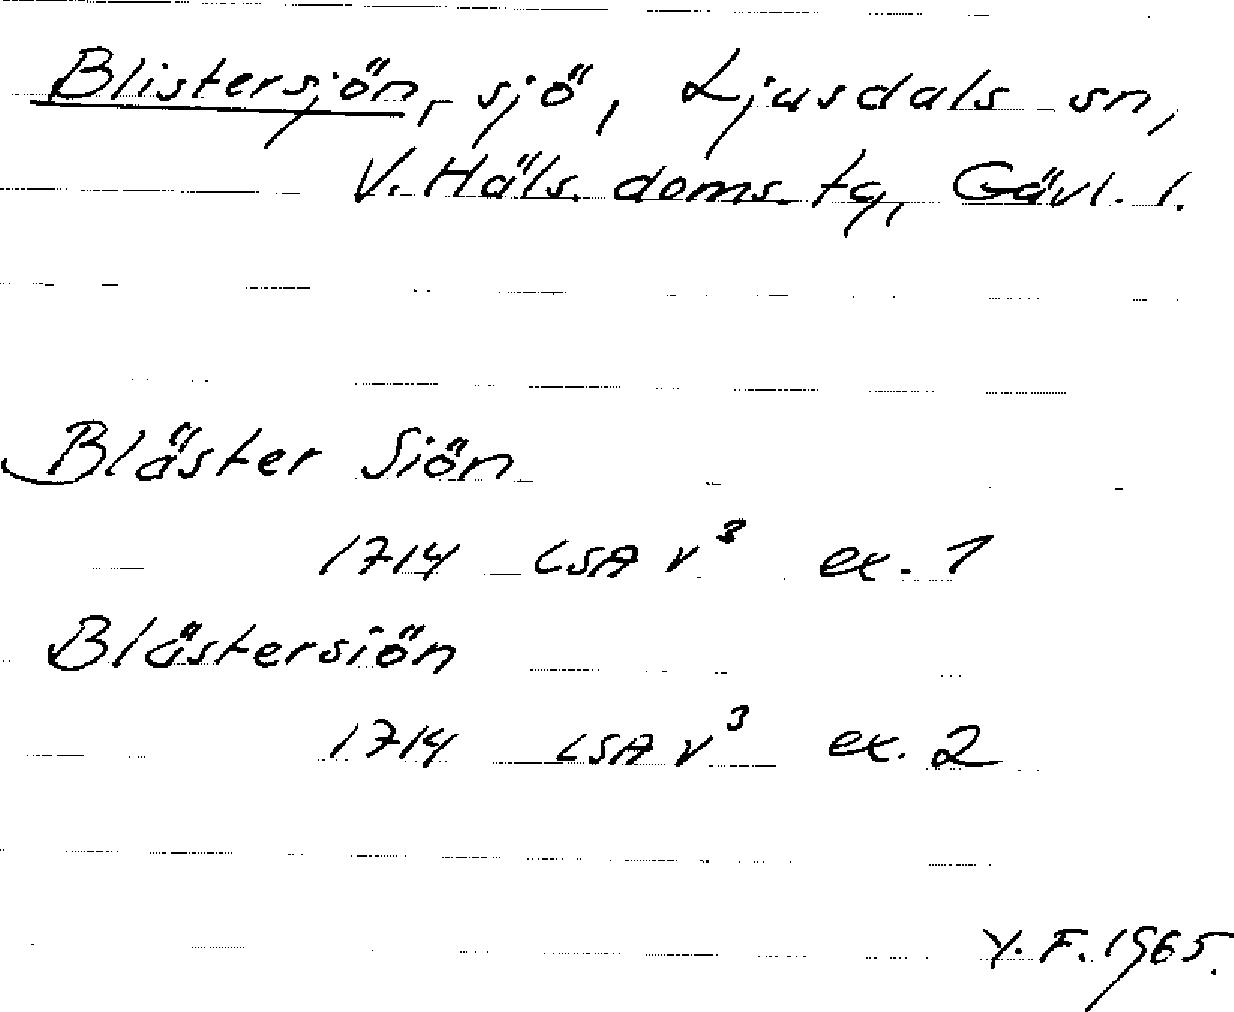 Blistersjön, sjö, Ljusdals sn,
V. Häls. doms. tg, Gävl. l.
Bläster Siön
1714 LSA v³ ex. 1
Blästersiön
1714 LSA v³ ex. 2
Y. F. 1965.